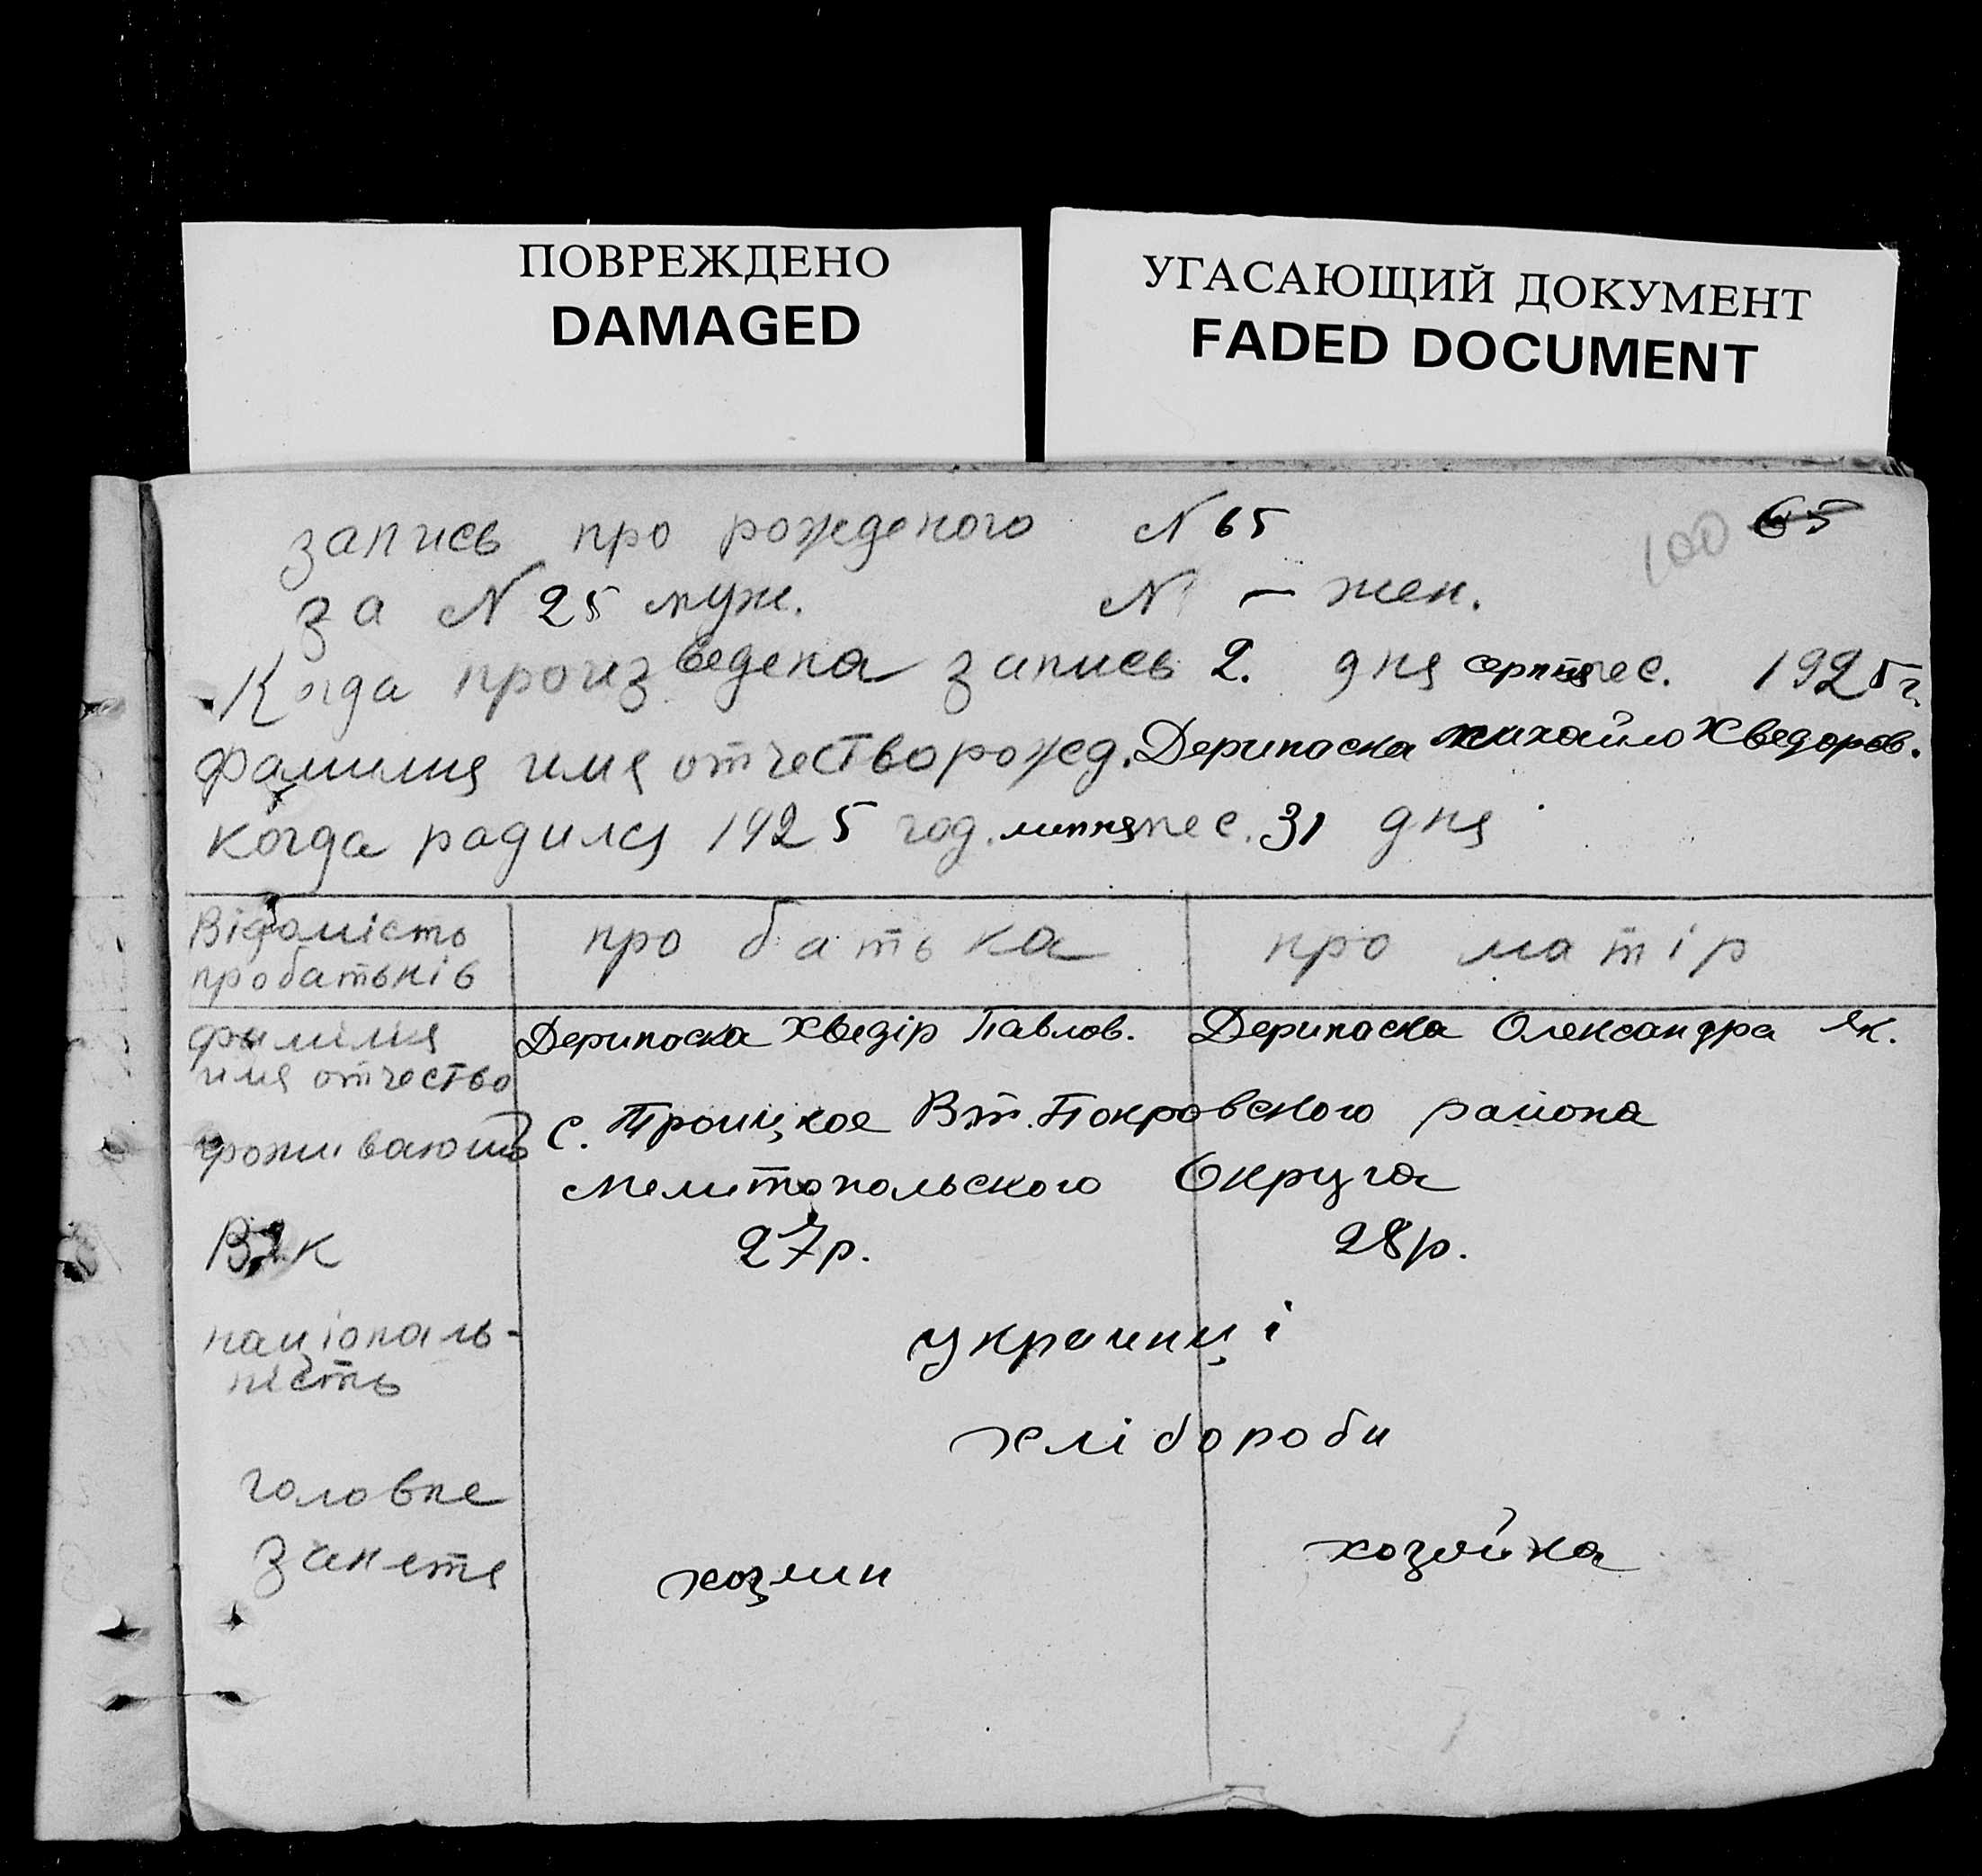 ПОВРЕЖДЕНО
DAMAGED
УГАСАЮЩИЙ ДОКУМЕНТ
FADED DOCUMENT
запись про рожденого N 65
100 65
за N 25 муж. N – жен.
Когда произведена запись 2. дня серпня мес. 1925 г.
фамилия имя отчество рожд. Дерипаска Михайло Хведоров.
когда радился 1925 год. липня мес. 31 дня
Відомість про батьків
про батька
про матір
фамілия имя отчество
Дерипаска Хведір Павлов.
Дерипаска Олександра Як.
проживають
с. Троицкое Вт. Покровского района
Мелитопольского Округа
Вік
27 р.
28 р.
національ-
ність
украинці
хлібороби
головне
заняття
хозяин
хозяйка